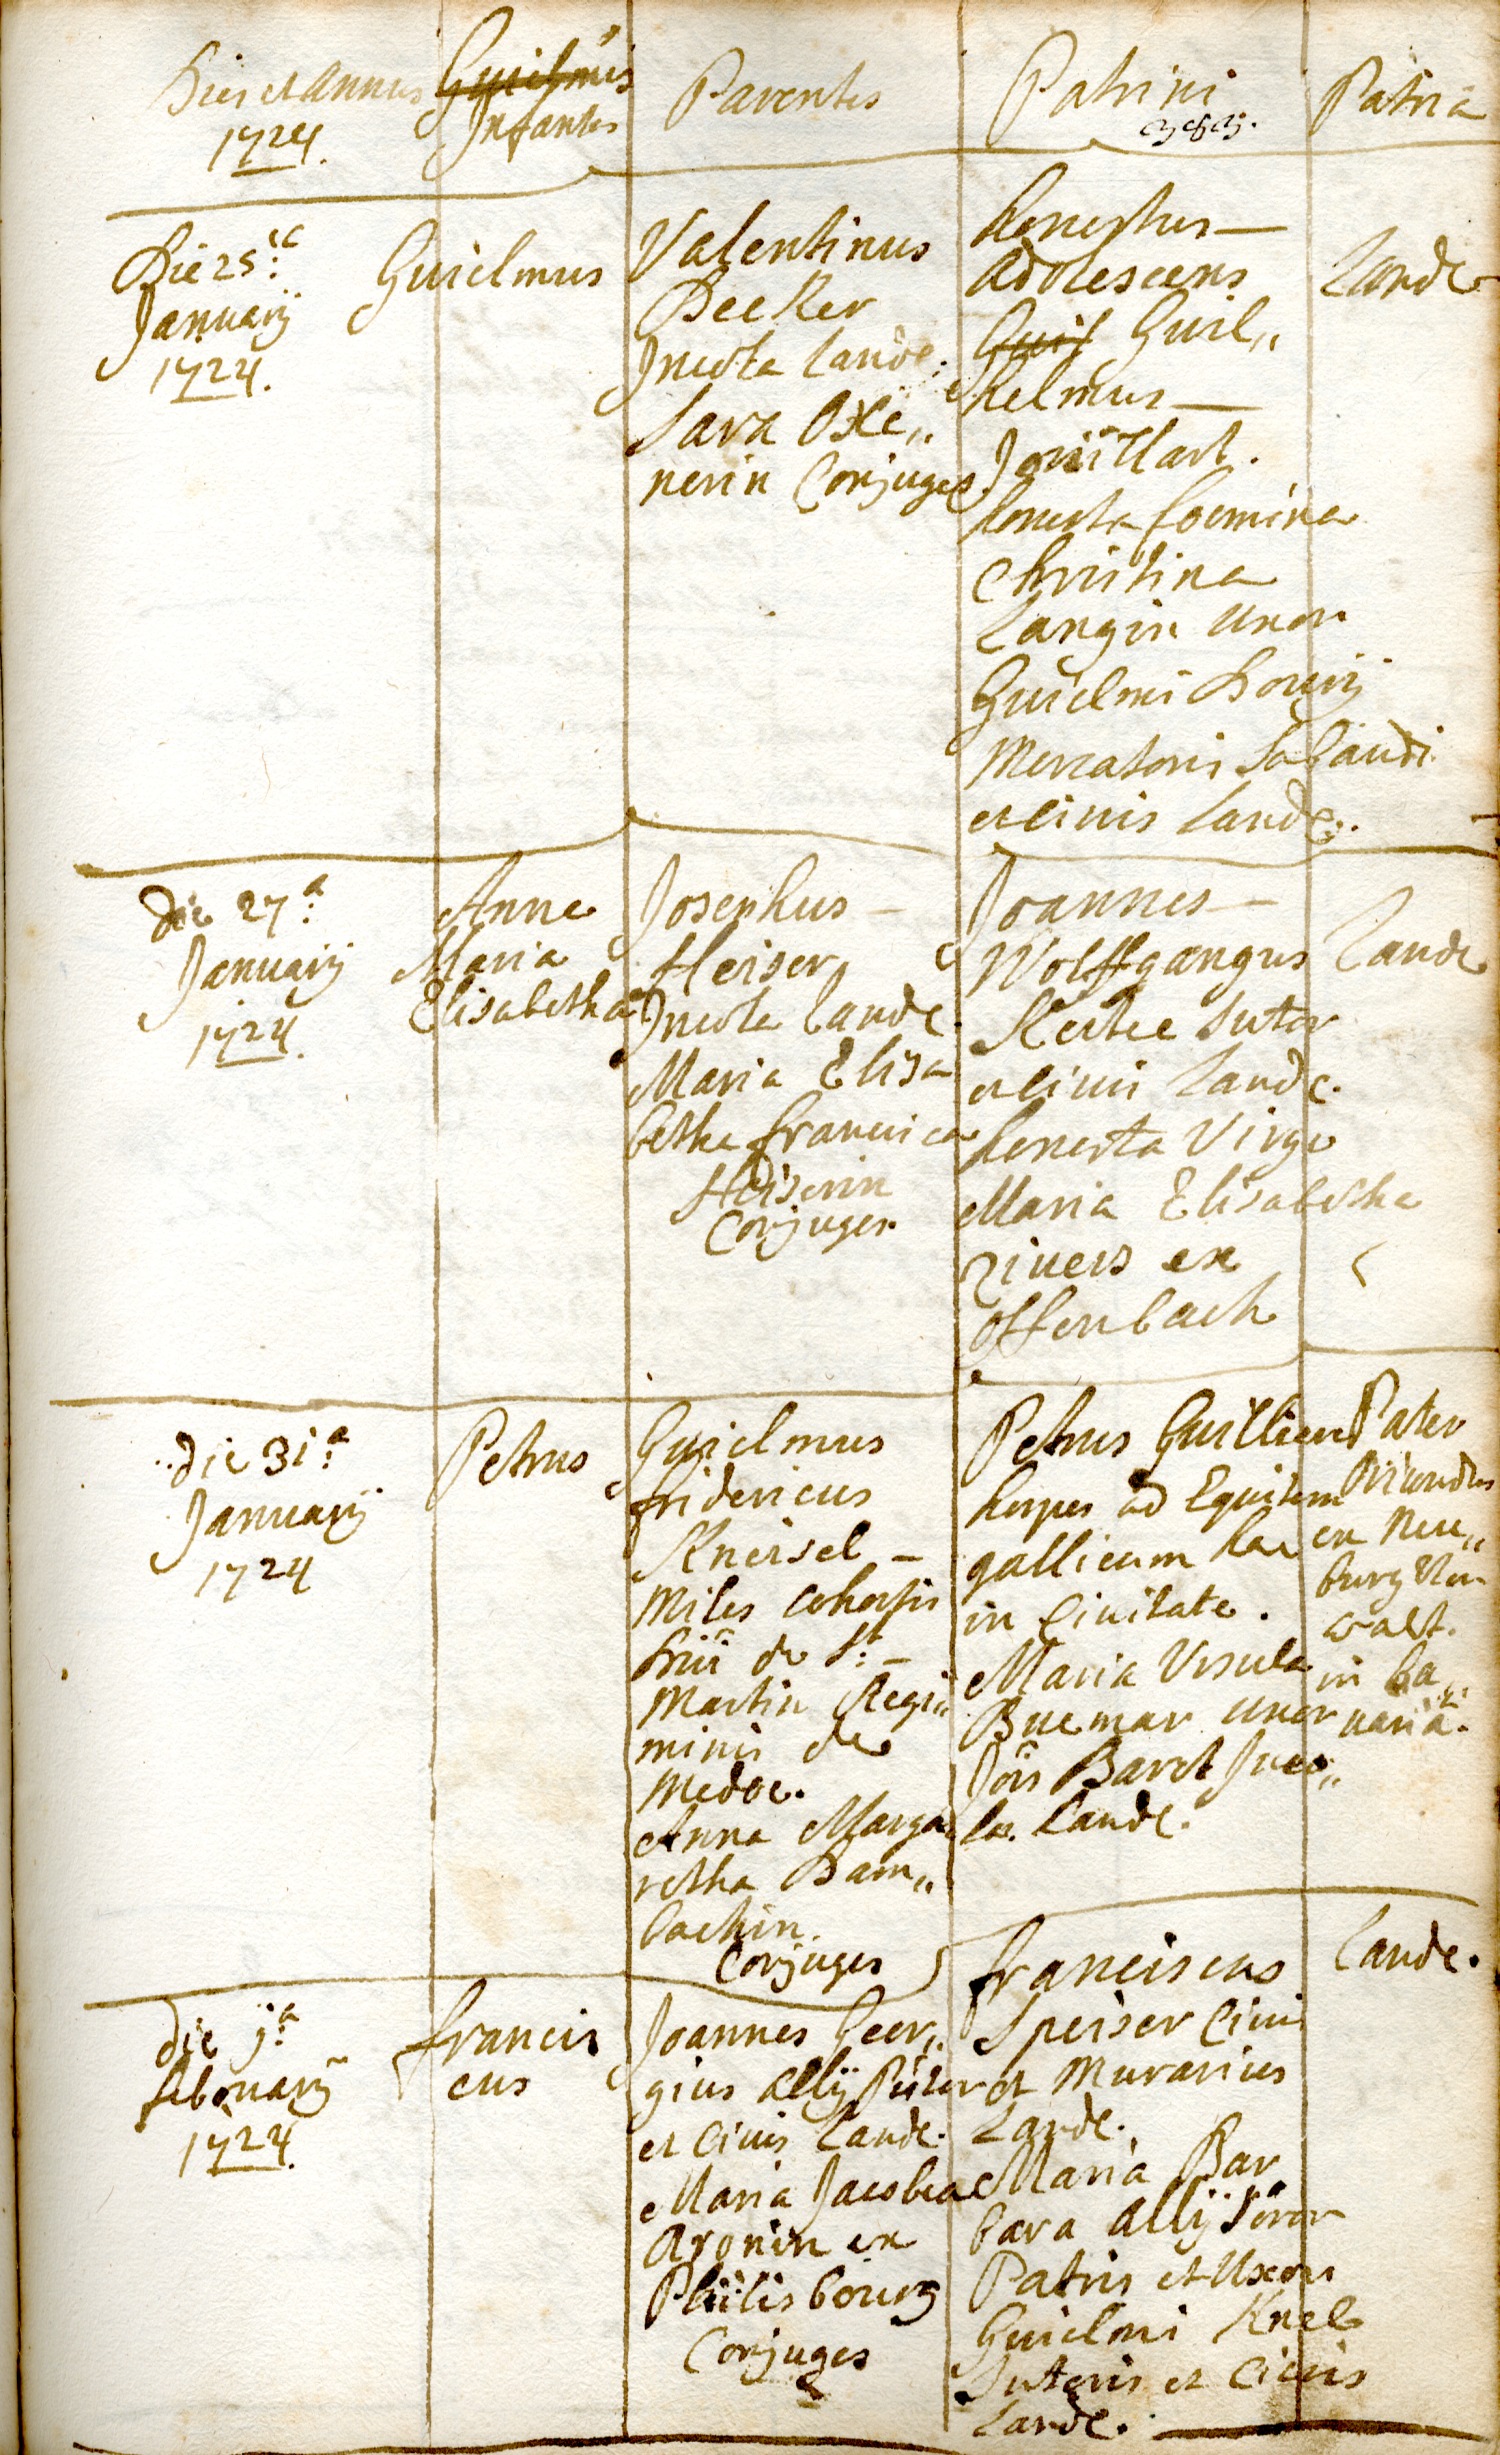 Dies et Annus
1724.
Guielmus
Infantes
Parentes
Patrini
Patria
Die 25.a
January
1724.
Guielmus
Valentinus
Becker
Incola Landc.
Sara Oxe„
nerin Conjuges
honestus —
adolescens
Guil Guil„
helmus —
honesta foemina
Christina
Langin uxor
Guielmi
Mercatoris Sabaudi
et civis Landc.
Landc
die 27.a
January
1724.
Anna
Maria
Elisabetha
Josephus —
Heiser
Incola Landc.
Maria Elisa
betha francisca
Heiserin
Conjuges.
Joannes —
Wolffgangus
sutor
et civis Landc.
honesta Virgo
Maria Elisabetha
Zivers ex
Offenbach
Landc
die 31.a
January
1724
Petrus
Guielmus
fridericus
Kneisel —
Miles cohortis
de St. —
Martin Regi„
minis de
Medoc.
Anna Marga
retha Bam„
bachin.
Conjuges
Petrus Guillien
hospes ad Equitem
gallicum hac
in Civitate.
Maria Ursula
Buemar uxor
Jõis Baret Inco„
la. Landc.
Pater
oriundus
ex Neu„
burg
walt.
in ba„
varia.
die 1.a
february
1724.
francis
cus
Joannes Geor„
gius Ally sutor
et Civis Landc.
Maria Jacobea
Aronin ex
Philisbourg
Conjuges
franciscus
Speiser Civis
et Murarius
Landc.
Maria Bar
bara Ally soror
Patris et Uxor
Guielmi Knel
Sutoris et Civis
Landc.
Landc.